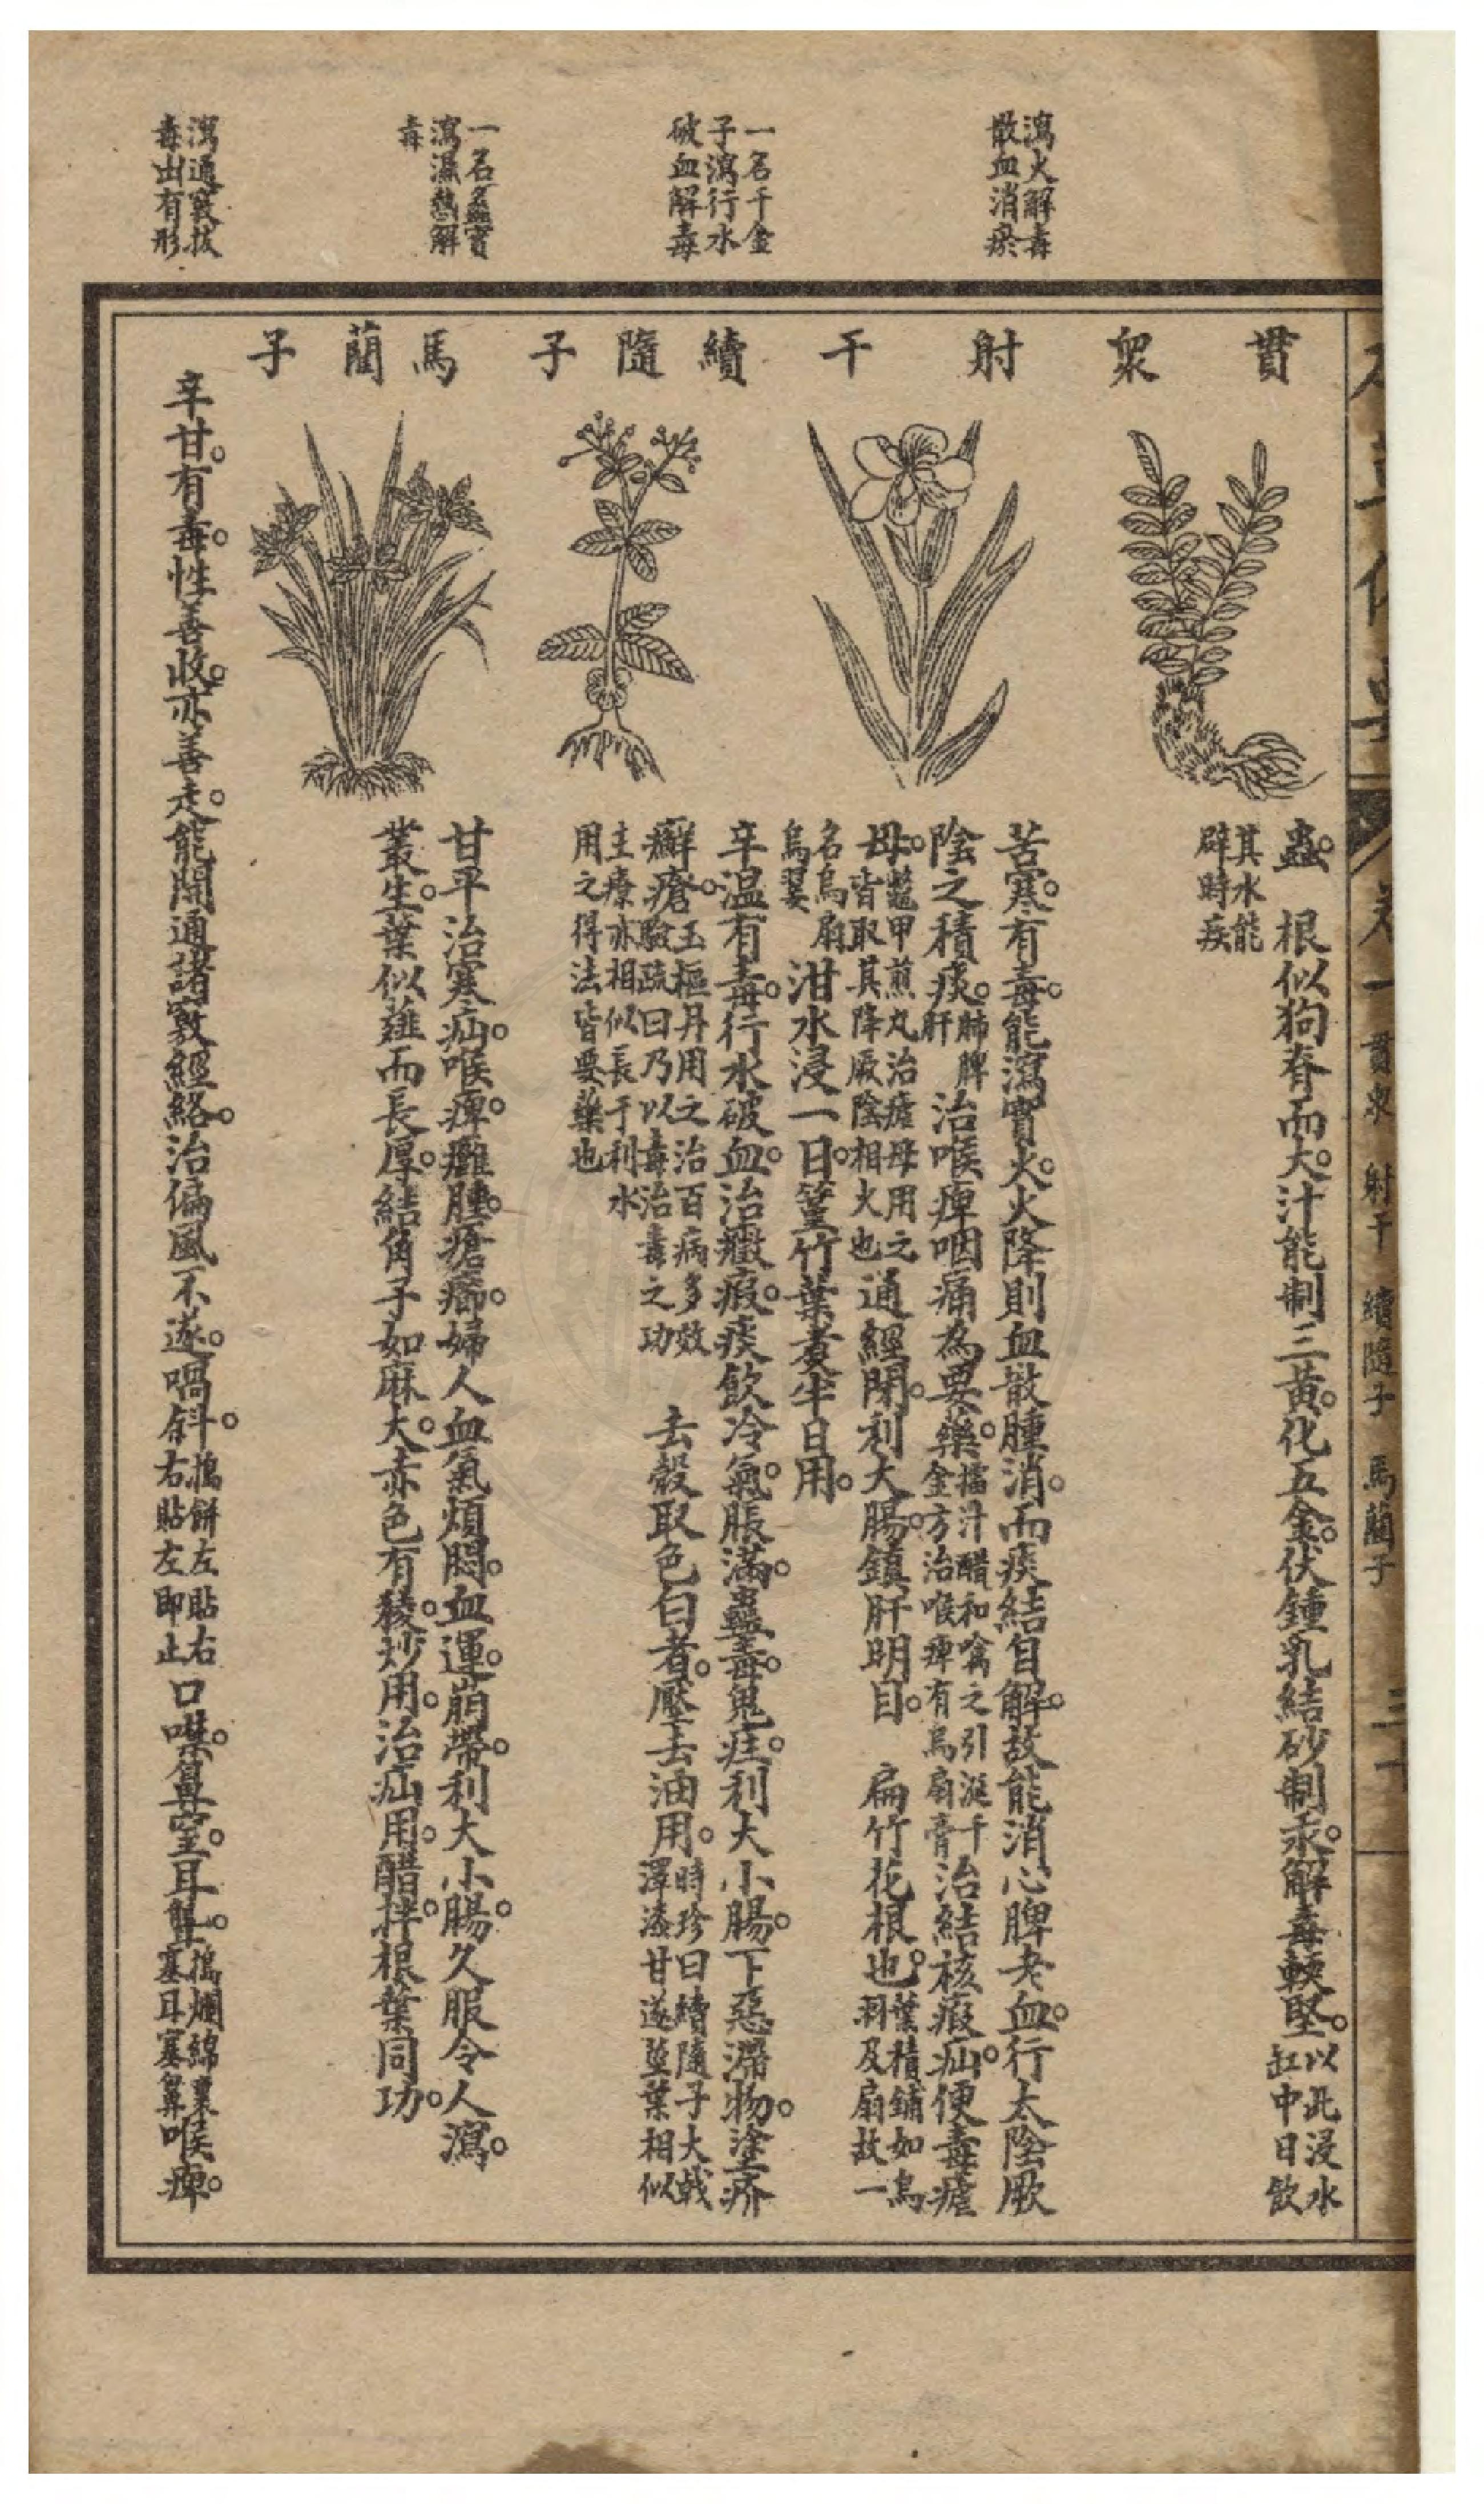 瀉火解毒
散血消痰
一名千金
子瀉行水
破血解毒
一名蠡實
瀉濕熱解
毒
瀉通竅拔
毒出有形
貫眾
射干
續隨子
馬藺子
卷一 貫衆 射干 續隨子 馬藺子
蟲。根似狗脊而大。汁能制三黃。化五金。伏鍾乳結砂制汞。解毒軟堅。以此浸水
缸中日飲
其水能
辟時疾
苦寒。有毒。能瀉實火。火降則血散腫消。而痰結自解。故能消心脾老血。行太陰厥
陰之積痰。肺脾
肝
治喉痺咽痛為要藥。擂汁醋和噙之引涎千
金方治喉痺有烏扇膏
治結核瘕疝。便毒瘧
母。鼈甲煎丸治瘧母用之
皆取其降厥陰相火也
通經閉。利大腸。鎮肝明目。扁竹花根也。葉積鋪如烏
羽及扇故一
名烏扇
烏翣
泔水浸一日。篁竹葉煮半日用。
辛溫有毒。行水破血。治癥瘕。痰飲冷氣。脹滿。蠱毒。鬼疰。利大小腸。下惡滯物。塗疥
癬瘡。玉樞丹用之治百病多效
驗疏曰乃以毒治毒之功
去殼取色白者。壓去油用。時珍曰續隨子大戟
澤漆甘遂莖葉相似
主療亦相似長于利水
用之得法皆要藥也
甘平治寒疝。喉痺。癰腫。瘡癤。婦人血氣煩悶。血運。崩帶。利大小腸。久服令人瀉。
叢生。葉似薤而長厚。結角子如麻大。赤色有稜。炒用。治疝用。醋拌。根葉同功。
辛甘。有毒。性善收。亦善走。能開通諸竅經絡。治偏風不遂。喎斜。搗餅左貼右
右貼左即止
口噤。鼻窒。耳聾。搗爛綿裹
塞耳塞鼻
喉痺。